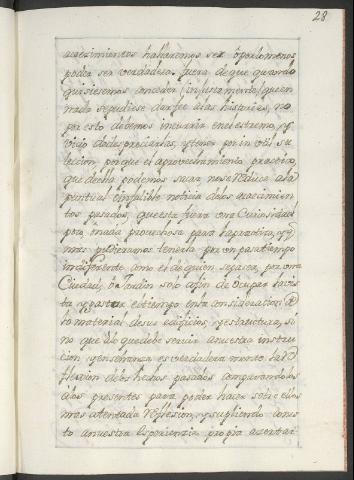 28
acaecimientos hallaremos ser ò por lo menos
poder ser verdadera. fuera de que quando
quisiesemos conceder injustamente, que en
nada se pudiese dar fee a las historias, no
por esto debemos incurrir en el estremo, y
vicio de despreciarlas, y tener por inutil su
leccion, porque el aprovechamiento
que de ella podemos sacar no se reduce a la
puntual è infalible noticia de los acaecimien
tos pasados, que esta fuera una Curiosidad
poco, ò nada provechosa para la practica, y
mas pudieramos tenerla por un pasatiempo
indiferente como el de quien se pasea por una
Ciudad, ò Jardin solo à fin de ocupar la vis
ta y gastar el tiempo en la consideracion de
lo material de sus edificios, y estructura, si
no que el que debe servir a nuestra instruc
cion, y enseñanza es verdaderamente la re
flexion de los hechos pasados comparandolos
a los presentes para poder hacer sobre ellos
mas atentada reflexion, y supliendo con es
to a nuestra experiencia propia acertar